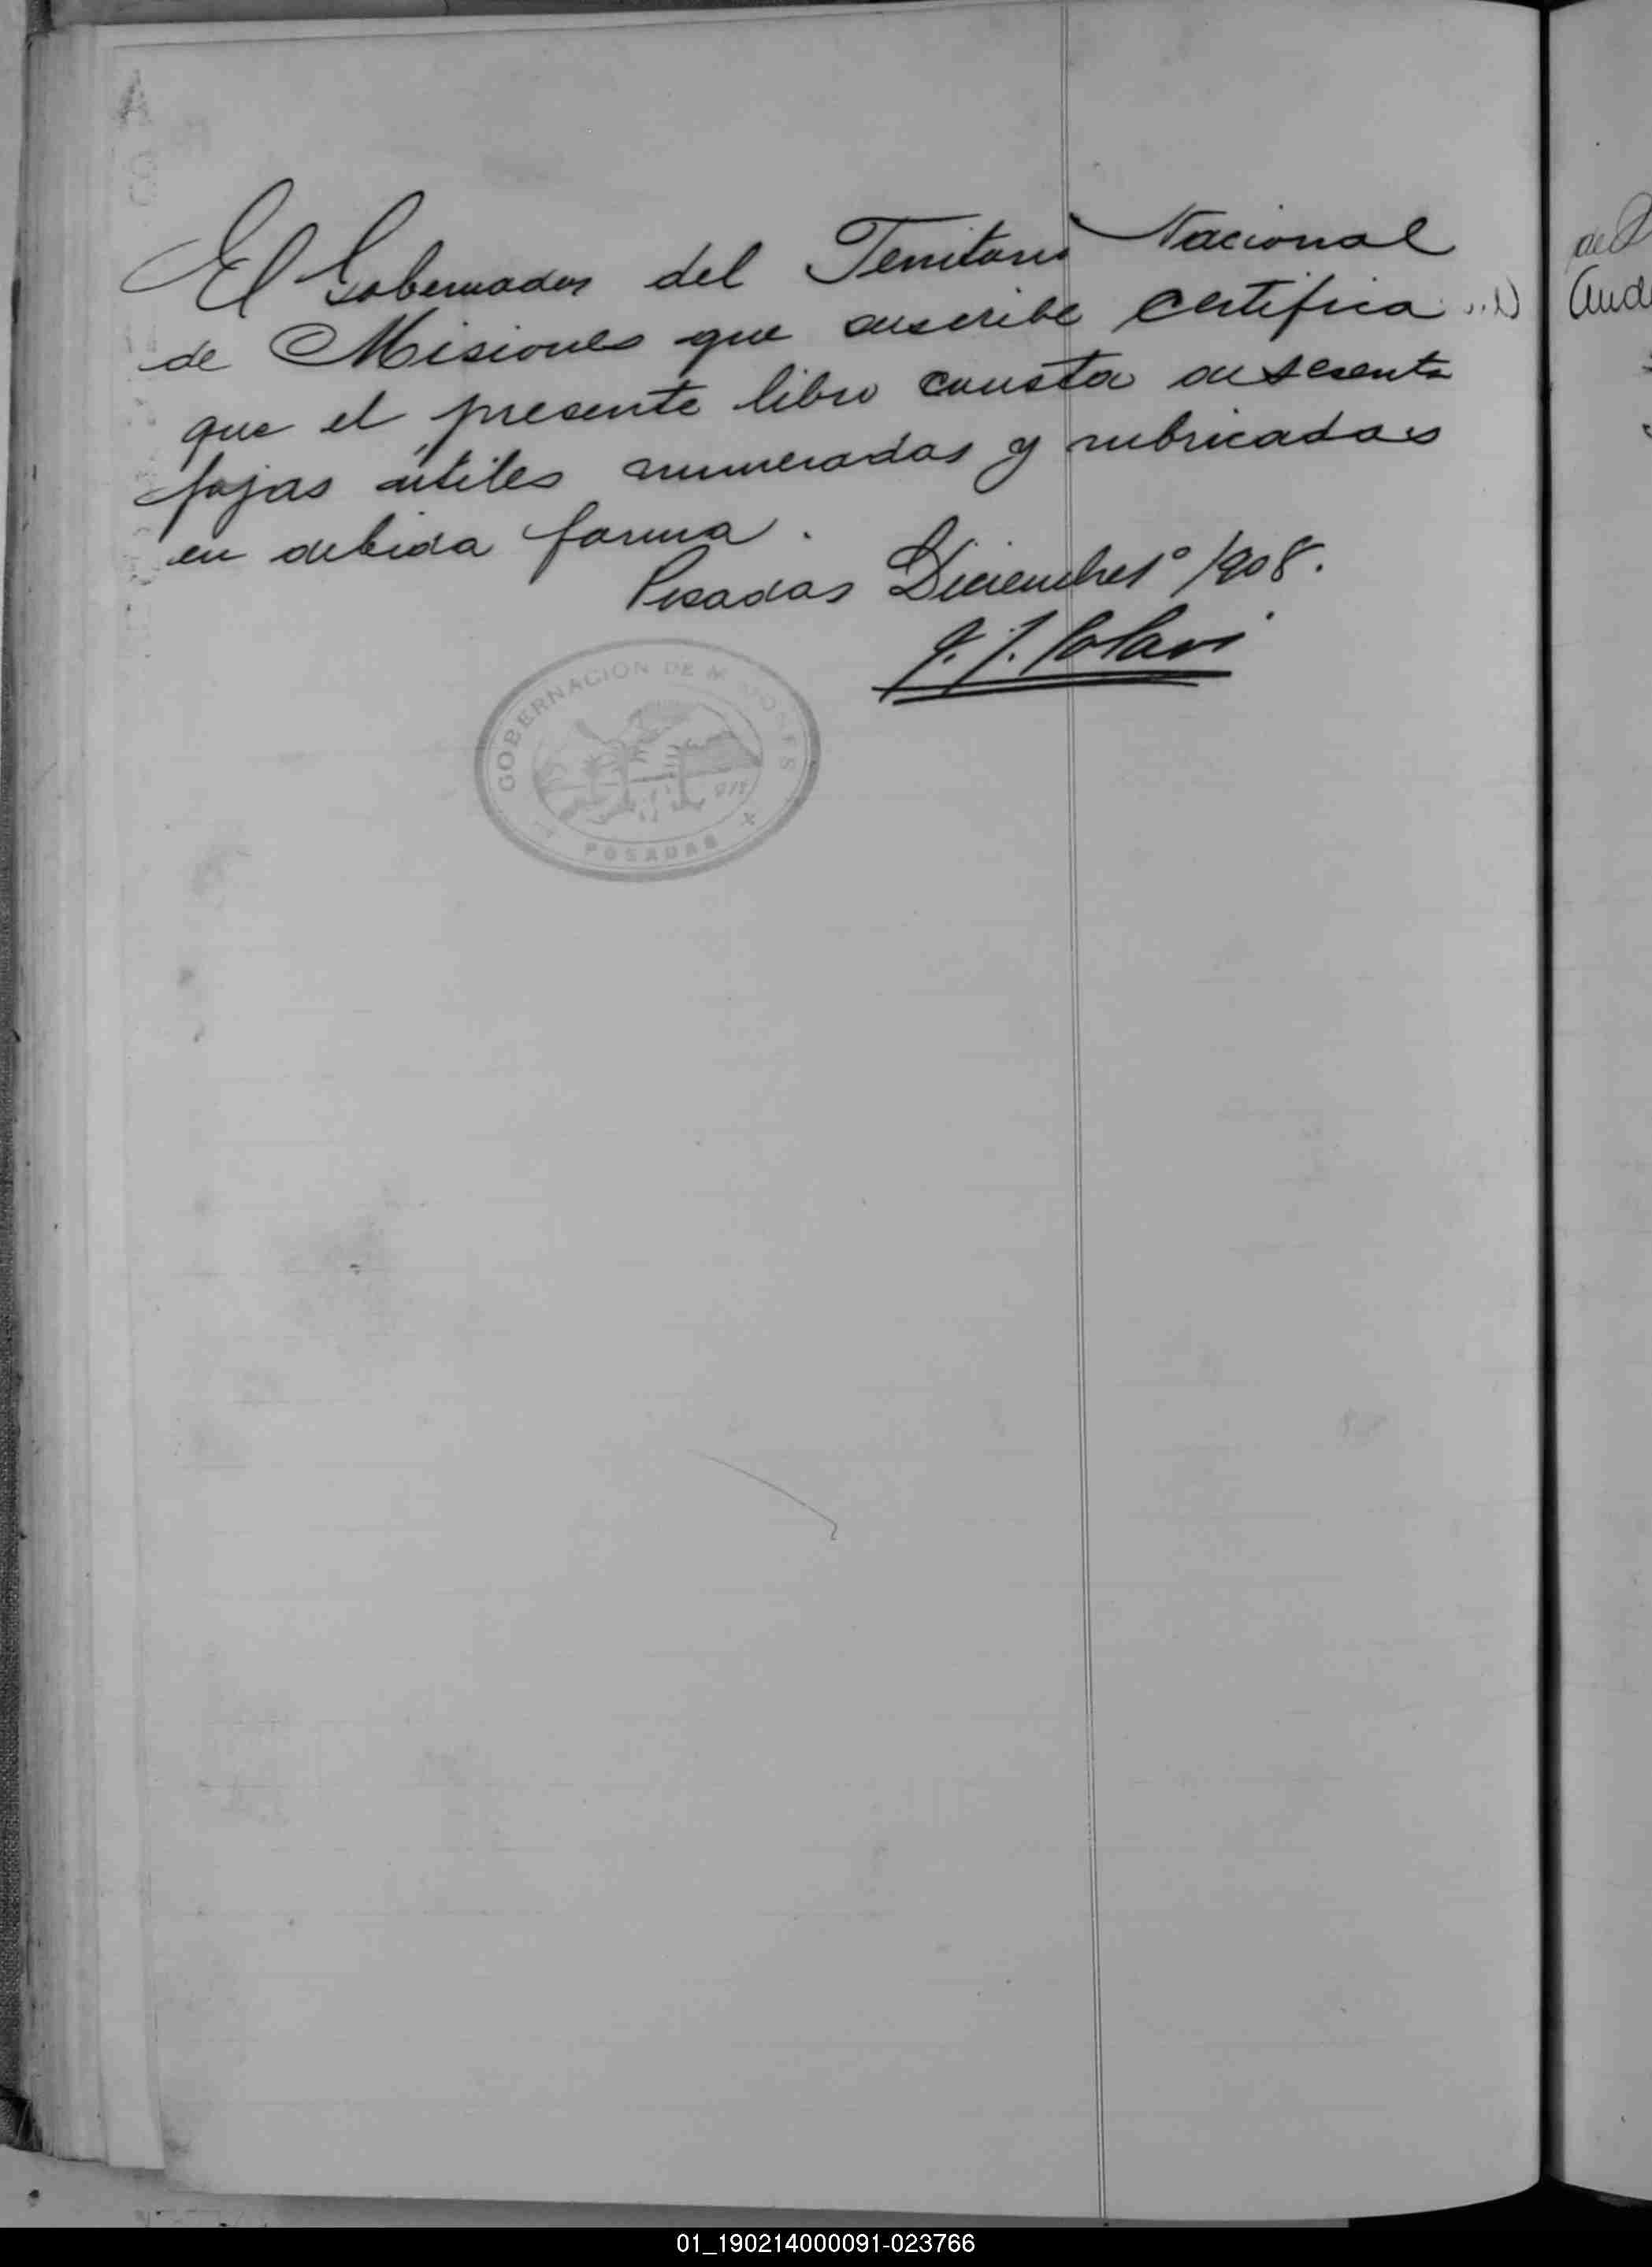 El Gobernador del Territorio Nacional
de Misiones que suscribe certifica
que el presente libro consta de sesenta
fojas útiles numeradas y rubricadas
en debida forma.
Posadas Diciembre 1º /908.
GOBERNACION DE MISIONES
POSADAS
01_190214000091-023766